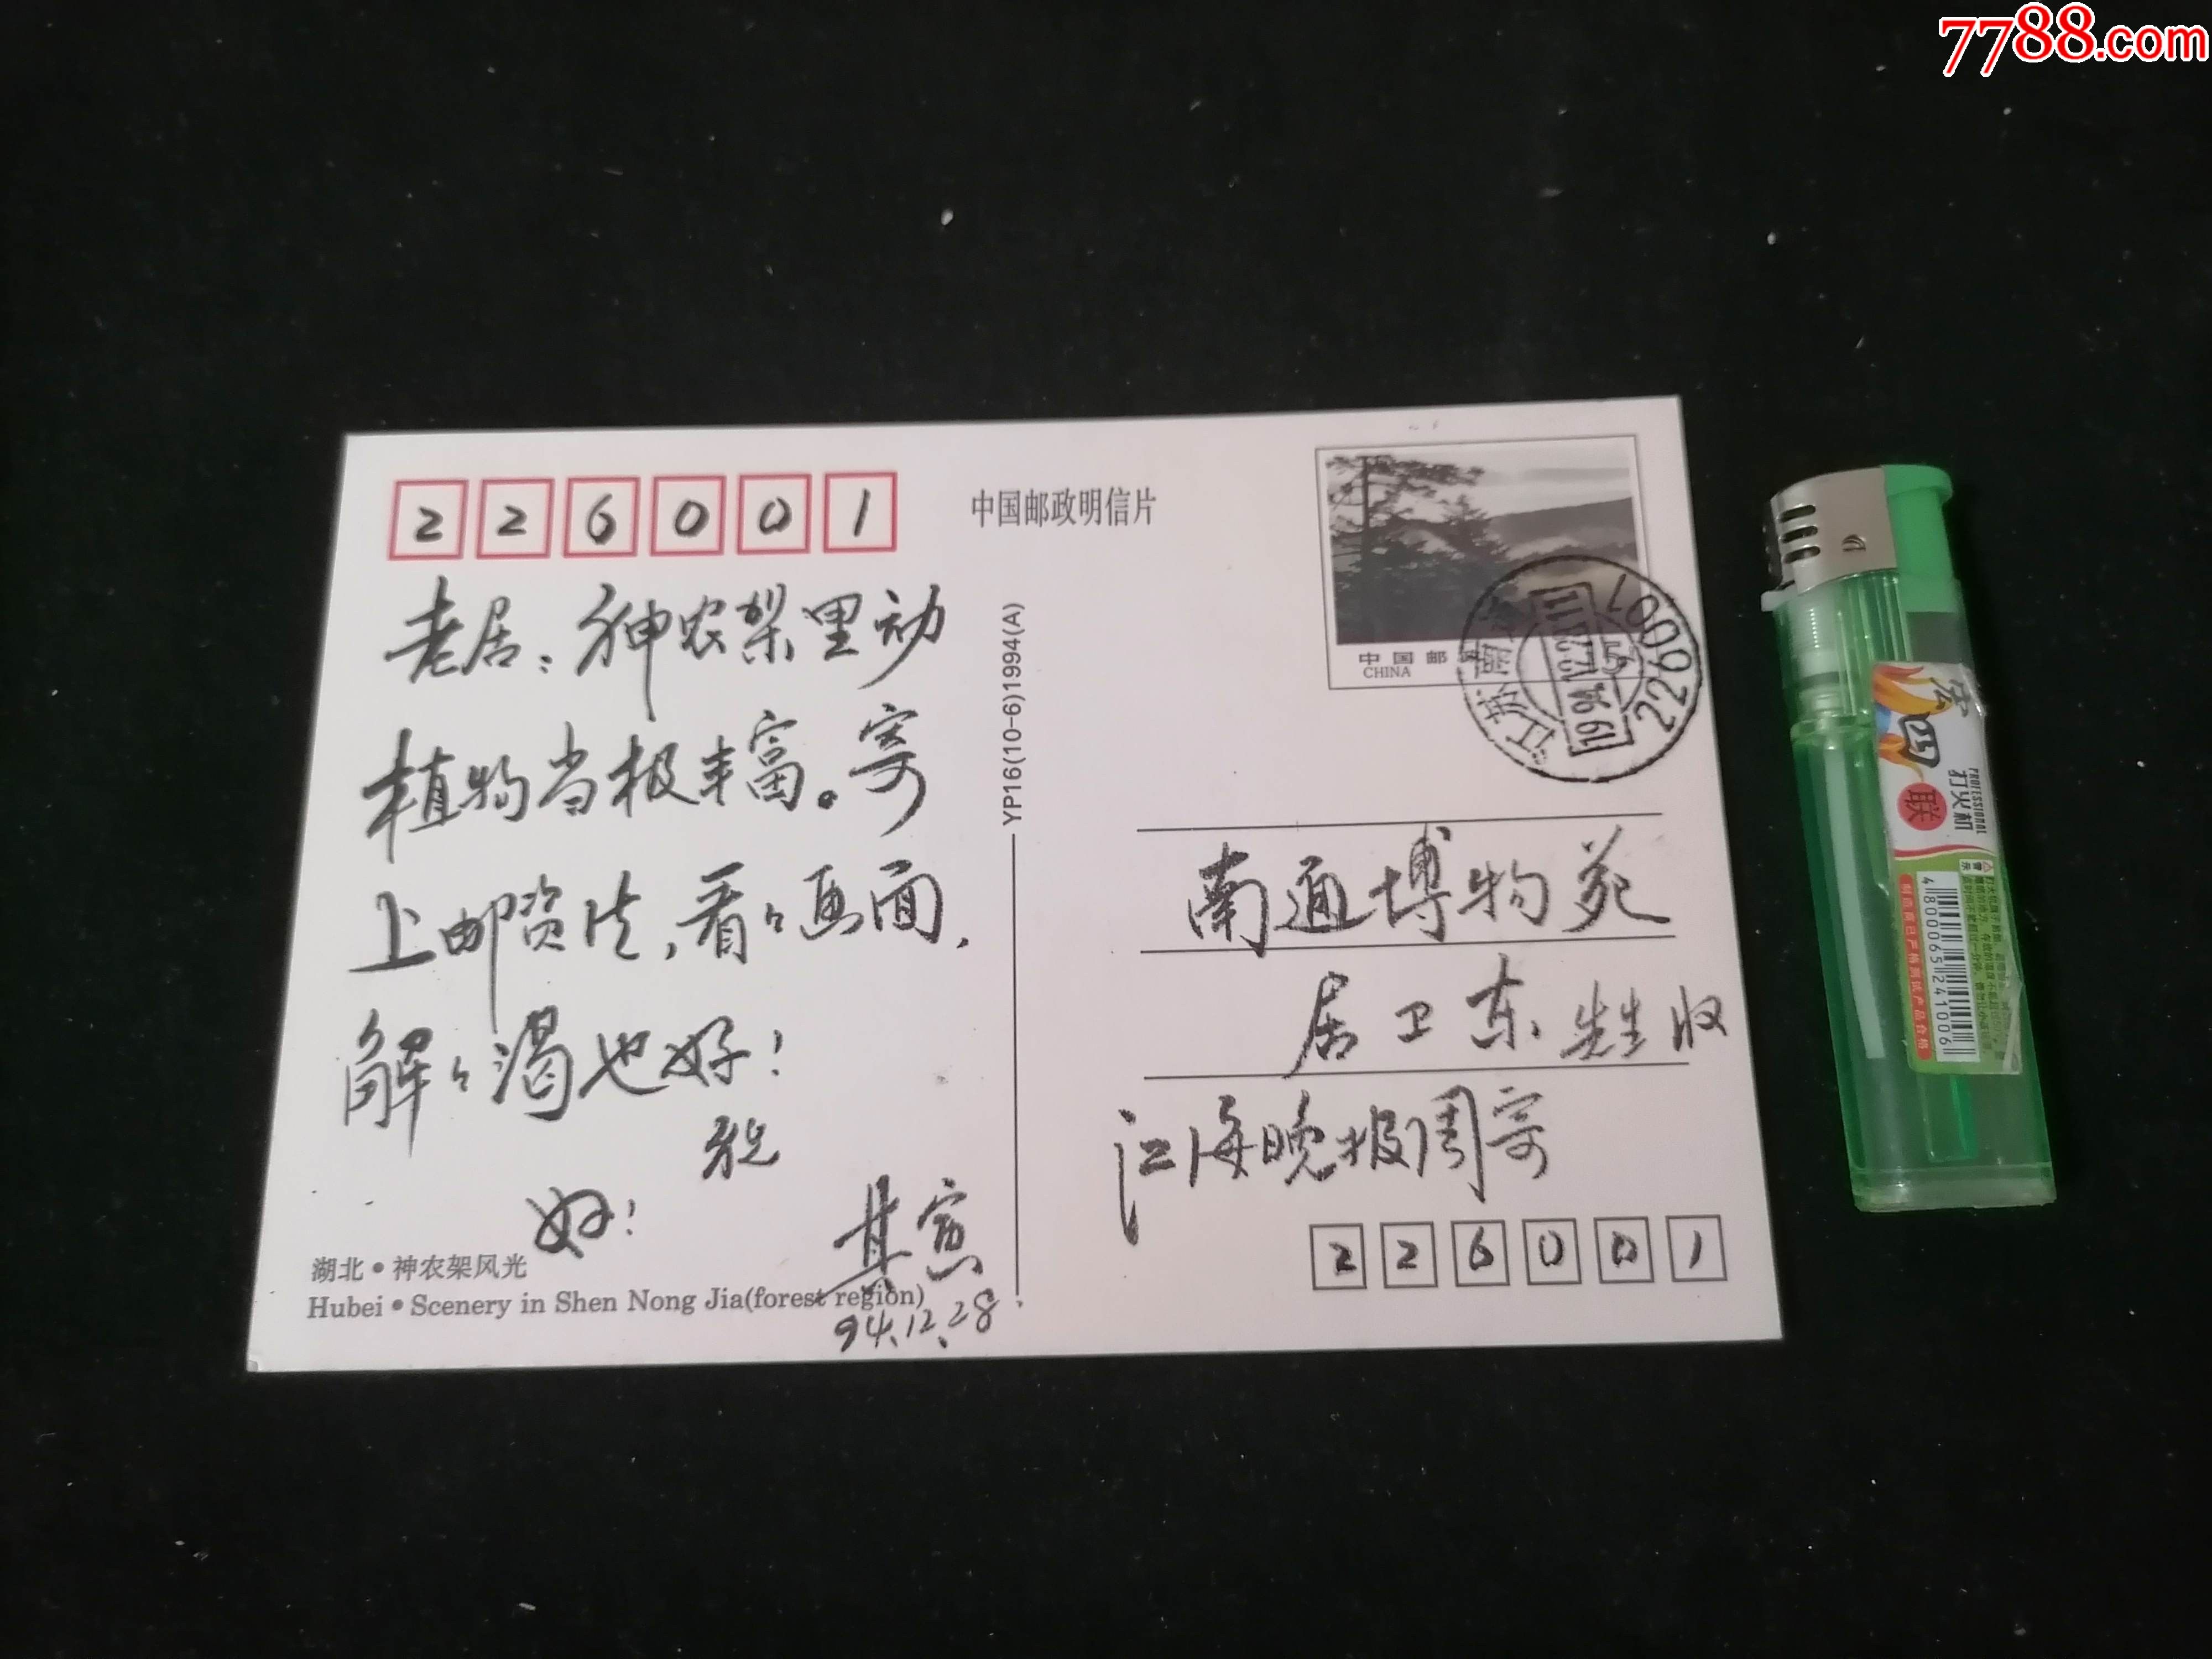 7788.com
226001
中国邮政明信片
中国邮
CHINA
江苏南
1994.12.28.11
226001
YP16(10-6)1994(A)
老居：神农架里动
植物当极丰富。寄
上邮资片，看々画面，
解々渴也好！
祝
好！
其寅
94.12.28
湖北•神农架风光
Hubei•Scenery in Shen Nong Jia(forest region)
南通博物苑
居卫东先生收
江海晚报周寄
226001
打火机
PROFESSIONAL
联
4800065241006